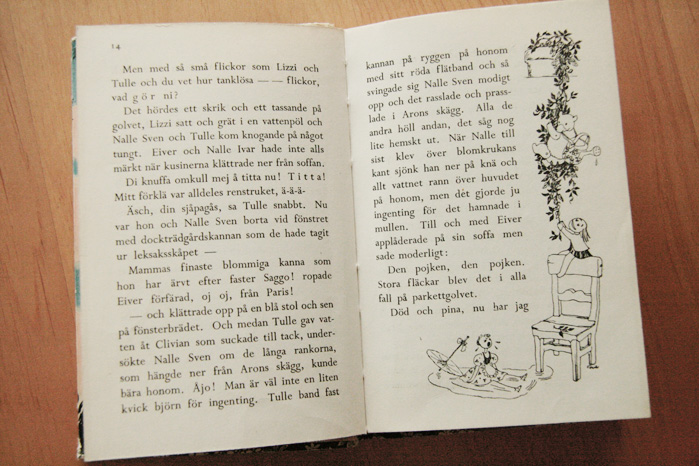 14
Men med så små flickor som Lizzi och
Tulle och du vet hur tanklösa — — flickor,
vad gör ni?
Det hördes ett skrik och ett tassande på
golvet, Lizzi satt och grät i en vattenpöl och
Nalle Sven och Tulle kom knogande på något
tungt. Eiver och Nalle Ivar hade inte alls
märkt när kusinerna klättrade ner från soffan.
Di knuffa omkull mej å titta nu! Titta!
Mitt förklä var alldeles renstruket, ä-ä-ä-
Äsch, din sjåpagås, sa Tulle snabbt. Nu
var hon och Nalle Sven borta vid fönstret
med dockträdgårdskannan som de hade tagit
ur leksaksskåpet —
Mammas finaste blommiga kanna som
hon har ärvt efter faster Saggo! ropade
Eiver förfärad, oj oj, från Paris!
— och klättrade opp på en blå stol och sen
på fönsterbrädet. Och medan Tulle gav vat-
ten åt Clivian som suckade till tack, under-
sökte Nalle Sven om de långa rankorna,
som hängde ner från Arons skägg, kunde
bära honom. Åjo! Man är väl inte en liten
kvick björn för ingenting. Tulle band fast
kannan på ryggen på honom
med sitt röda flätband och så
svingade sig Nalle Sven modigt
opp och det rasslade och prass-
lade i Arons skägg. Alla de
andra höll andan, det såg nog
lite hemskt ut. När Nalle till
sist klev över blomkrukans
kant sjönk han ner på knä och
allt vattnet rann över huvudet
på honom, men dèt gjorde ju
ingenting för det hamnade i
mullen. Till och med Eiver
applåderade på sin soffa men
sade moderligt:
Den pojken, den pojken.
Stora fläckar blev det i alla
fall på parkettgolvet.
Död och pina, nu har jag